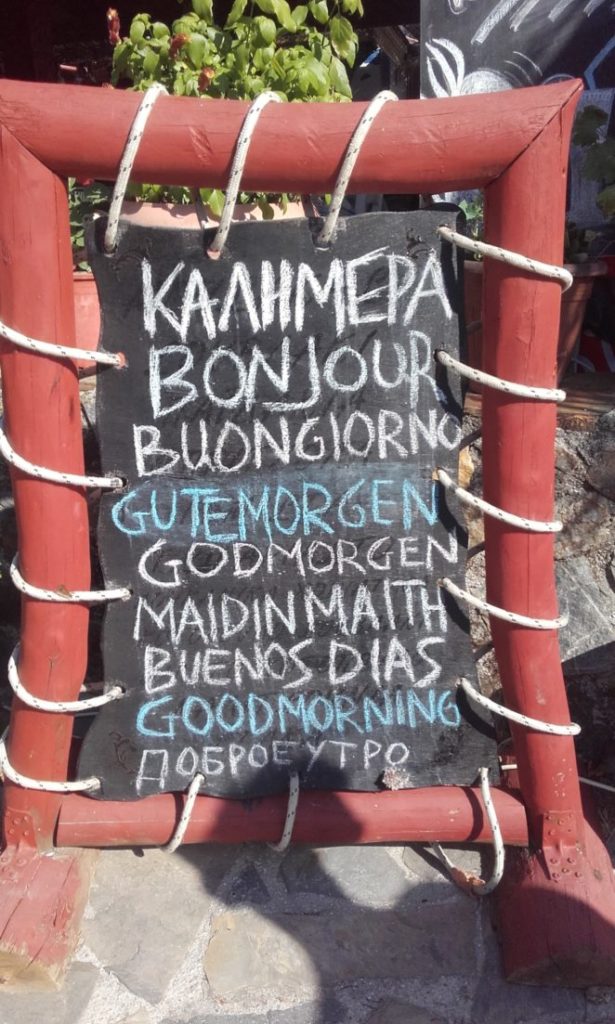 ΚΑΛΗΜΕΡΑ
BONJOUR
BUONGIORNO
GUTEMORGEN
GODMORGEN
MAIDIN MAITH
BUENOS DIAS
GOODMORNING
ДОБРОЕ УТРО